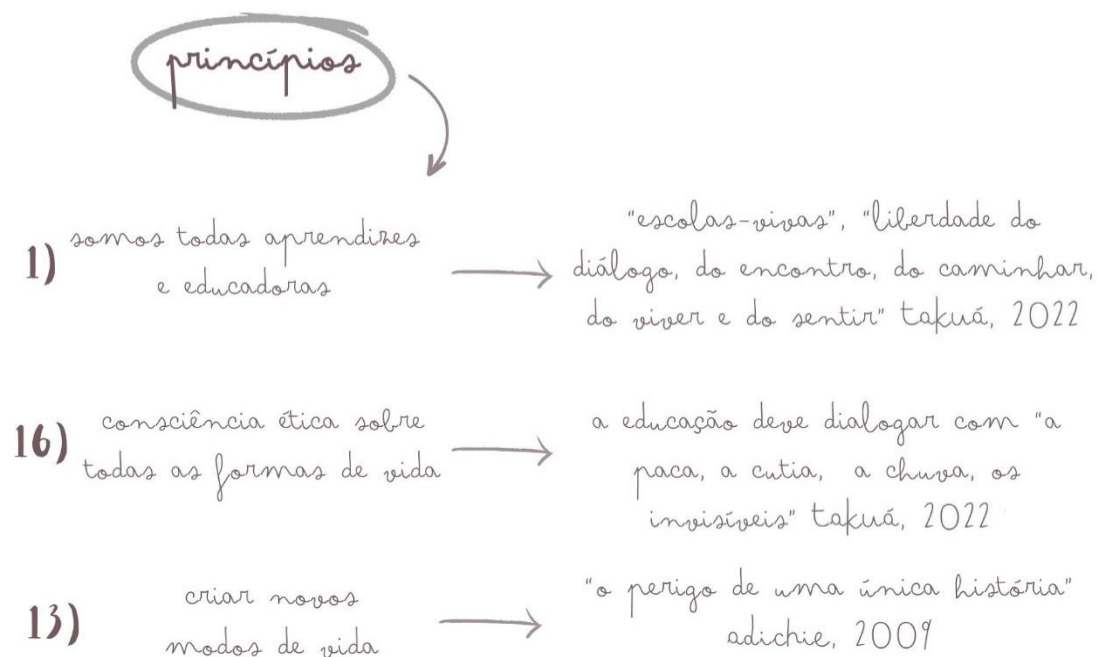 princípios
1) somos todas aprendizes
e educadoras
"escolas-vivas", "liberdade do
diálogo, do encontro, do caminhar,
do viver e do sentir" takuá, 2022
16) consciência ética sobre
todas as formas de vida
a educação deve dialogar com "a
paca, a cutia, a chuva, os
invisíveis" takuá, 2022
13) criar novos
modos de vida
"o perigo de uma única história"
adichie, 2009